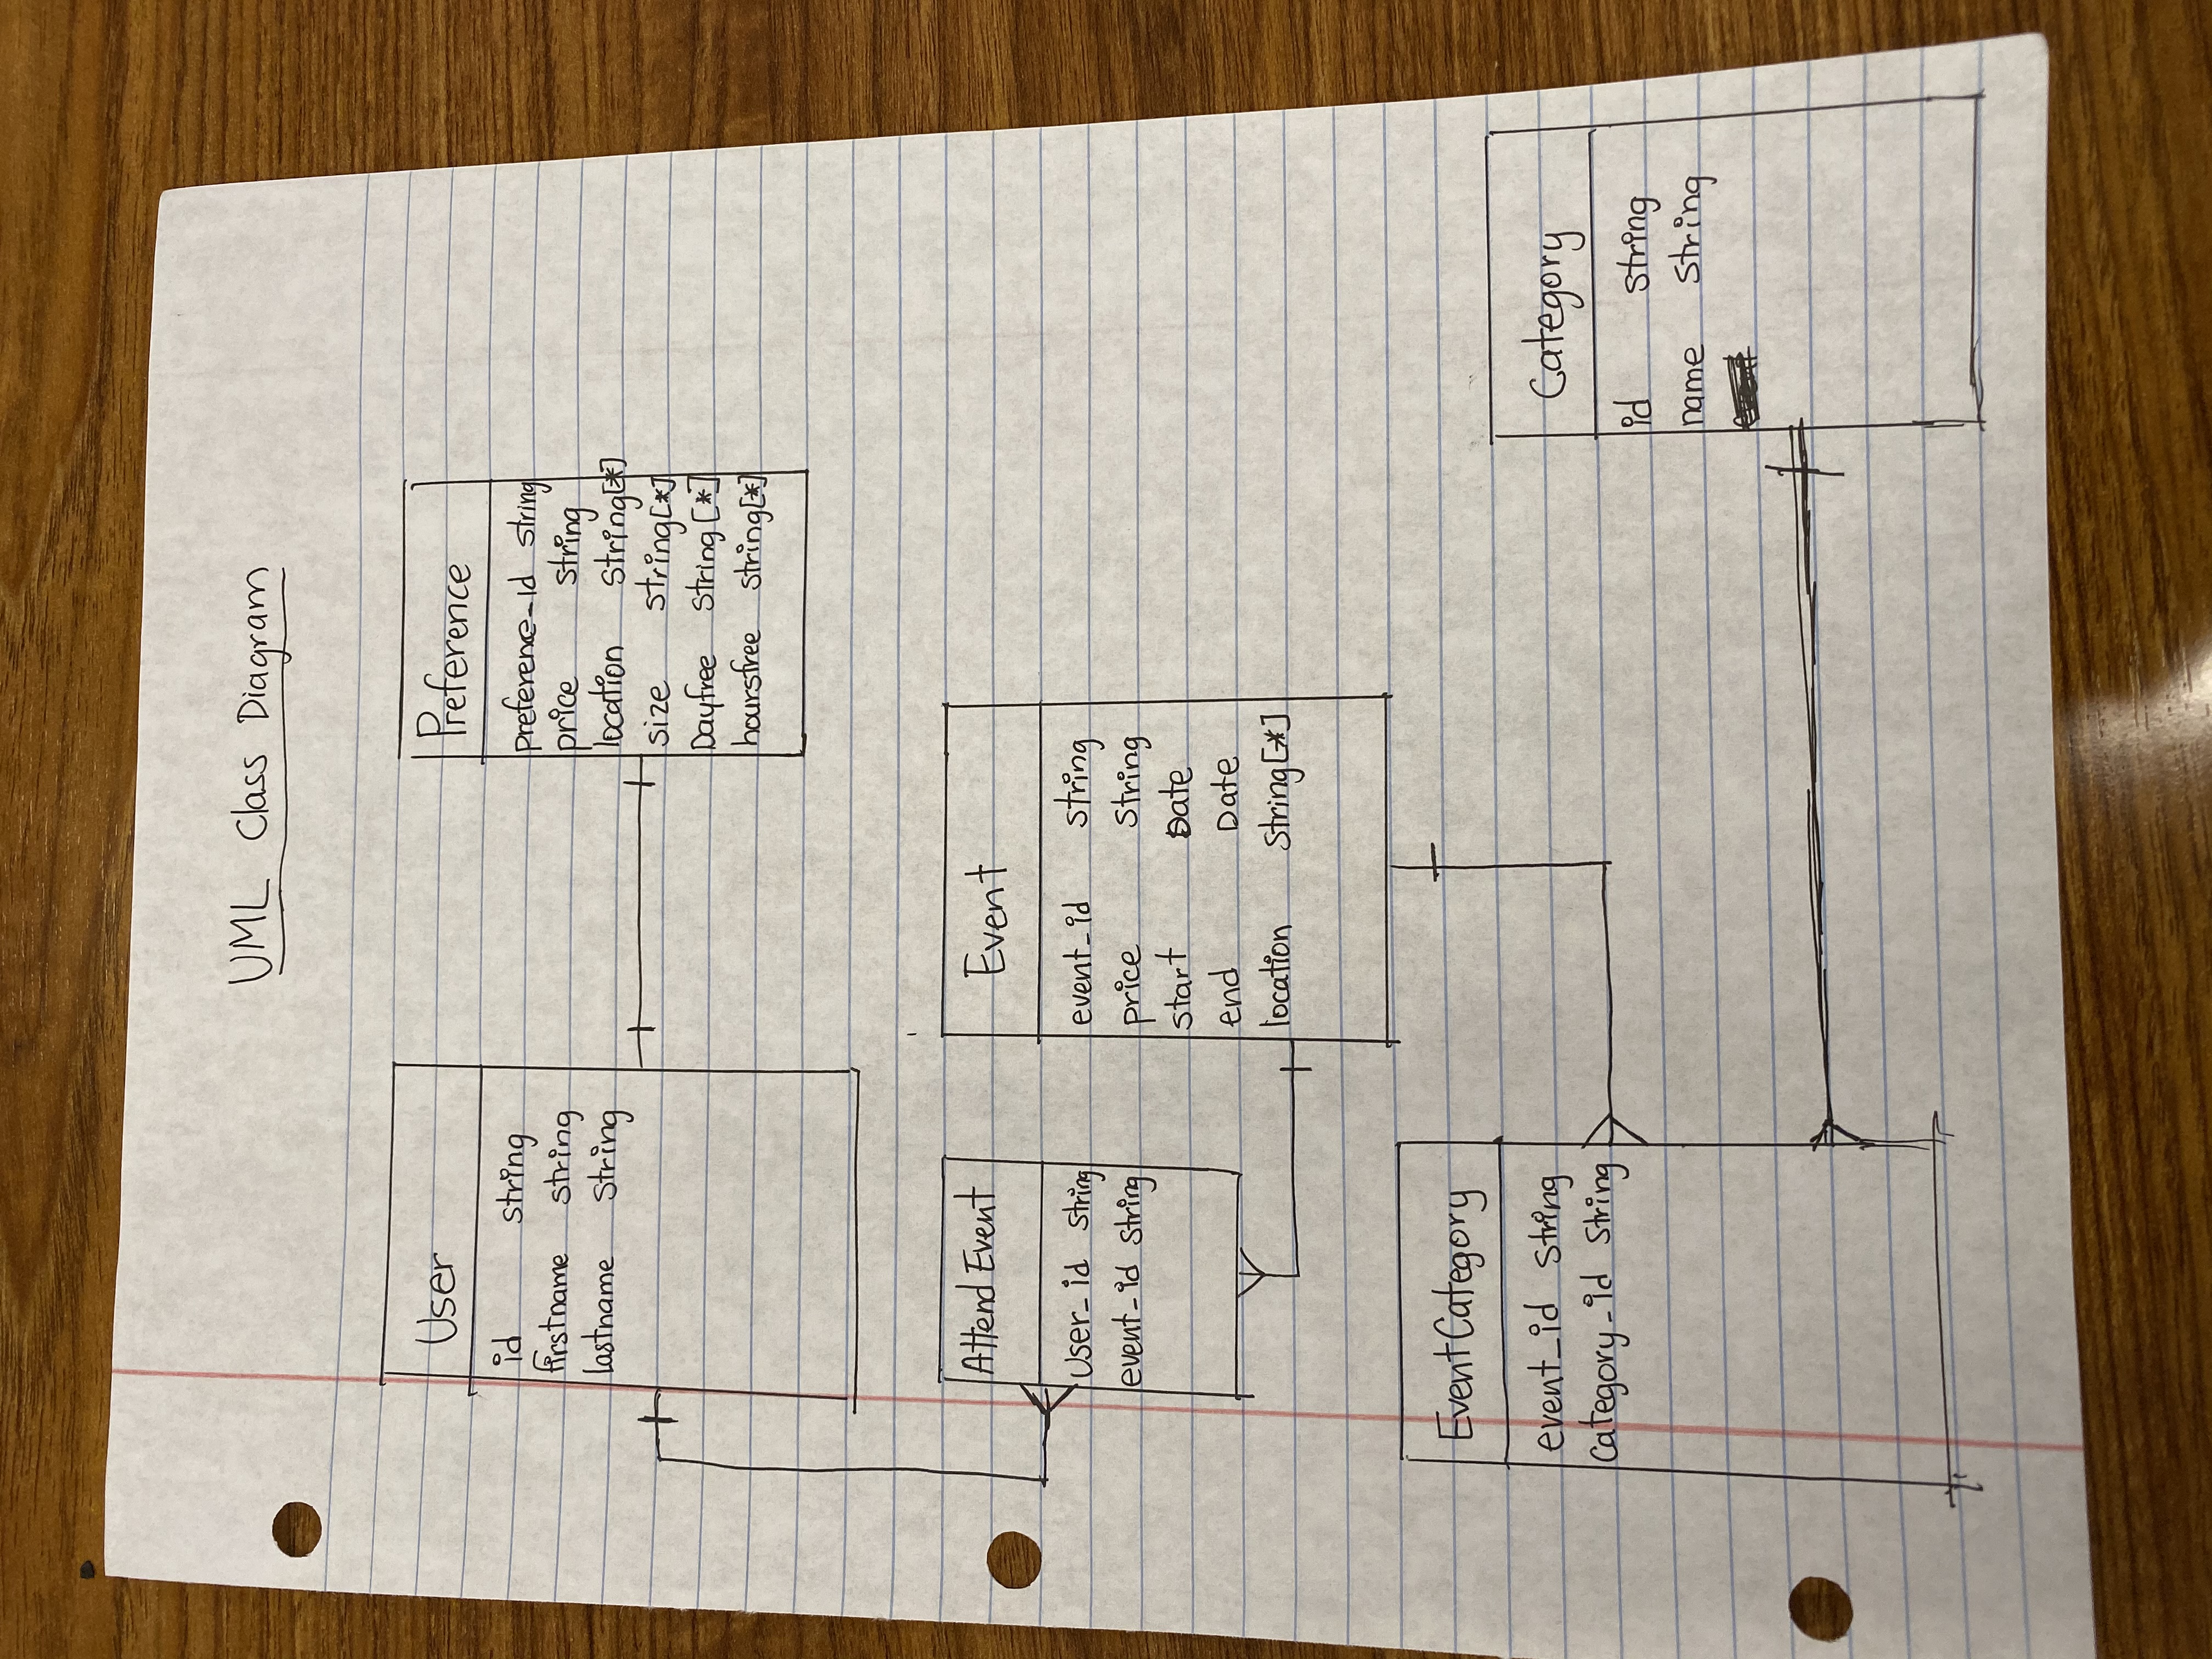 UML Class Diagram
User
id string
firstname string
lastname string
Preference
preference_id string
price string
location string[*]
size string[*]
Dayfree string[*]
hoursfree string[*]
Attend Event
User_id string
event_id string
Event
event_id string
price string
start Date
end Date
location string[*]
EventCategory
event_id string
category_id string
Category
id string
name string